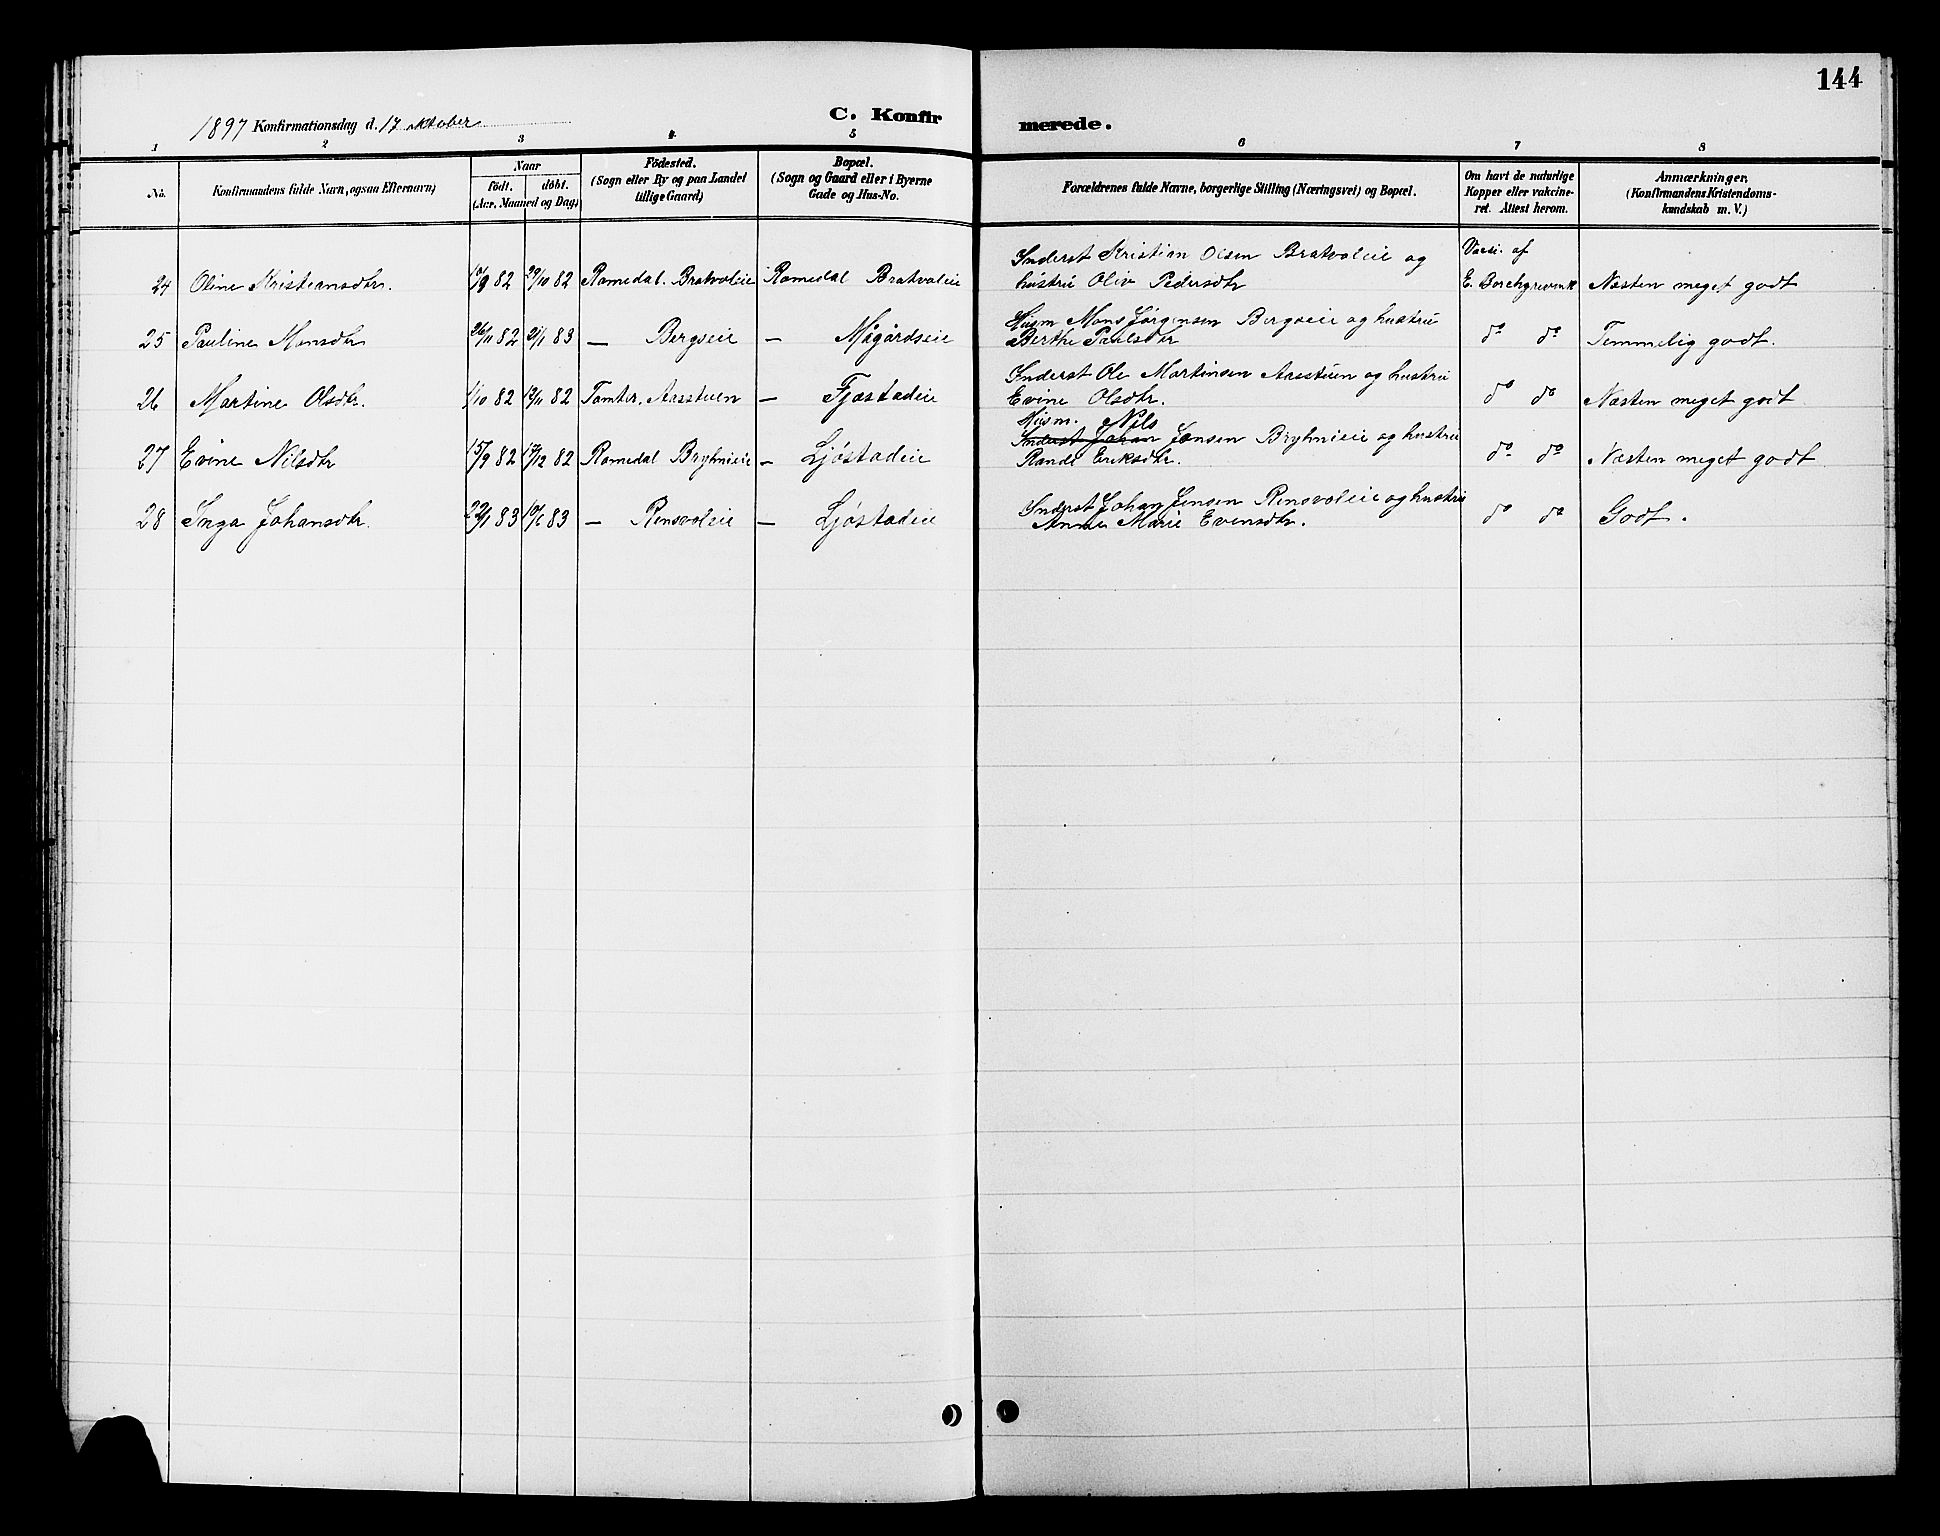 144
1897 Konfirmationsdag d. 17 oktober
C. Konfir
merede.
1 2 3 4 5 6 7 8
No.
Konfirmandens fulde Navn, ogsaa Efternavn)
Naar
födt. döbt.
(Aar, Maaned og Dag)
Födested.
(Sogn eller By og paa Landet
tillige Gaard)
Bopæl.
(Sogn og Gaard eller i Byerne
Gade og Hus-No.
Forældrenes fulde Navne, borgerlige Stilling (Næringsvei) og Bopæl.
Om havt de naturlige
Kopper eller vakcine-
ret. Attest herom.
Anmærkninger,
(Konfirmandens Kristendoms-
kundskab m. V.)
Inderst Kristian Olsen Bratvoleie og Vacsi. af
24 Oline Kristiansdtr. 10/9 82 29/10 82 Romedal. Bratvoleie Romedal Bratvoleie hustru Oliv Pedersdtr E. Borchgrevink Næsten meget godt
Husm Mons Jørgensen Bergseie og hustru
25 Pauline Monsdtr 26/11 82 21/1 83 — Bergseie — Mågårdseie Berthe Paulsdtr do do Temmelig godt.
Inderst Ole Martinsen Aasstuen og hustru
26 Martine Olsdtr. 1/10 82 12/11 82 Tomter, Aasstuen — Fjæstadeie Evine Olsdtr. do do Næsten meget godt
Husm. Nils
Inderst Johan Jensen Bryhnieie og hustru
27 Evine Nilsdtr 15/9 82 17/12 82 Romedal Bryhnieie — Ljøstadeie Randi Eriksdtr. do do Næsten meget godt
Inderst Johan Jensen Rensvoleie og hustru
28 Inga Johansdtr. 22/1 83 10/6 83 — Rensvoleie — Ljøstadeie Anne Marie Evensdtr. do do Godt.